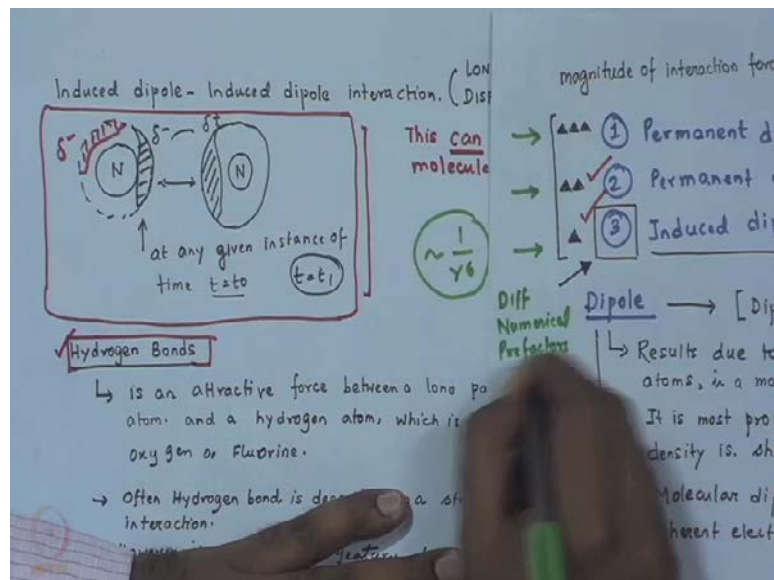 Induced dipole - Induced dipole interaction. (LON
DISP
δ- δ- δ+
N N
at any given instance of
time t=t0 t=t1
Hydrogen Bonds
↳ is an attractive force between a lone pa
atom. and a hydrogen atom, which is
oxygen or Fluorine.
→ Often Hydrogen bond is a st
interaction.
This can
molecule
~ 1/r6
magnitude of interaction forc
① Permanent d
② Permanent
③ Induced dip
Diff
Numerical
Prefactors
Dipole → [Dip
↳ Results due to
atoms, in a mo
It is most pro
density is. sh
Molecular di
herent elect